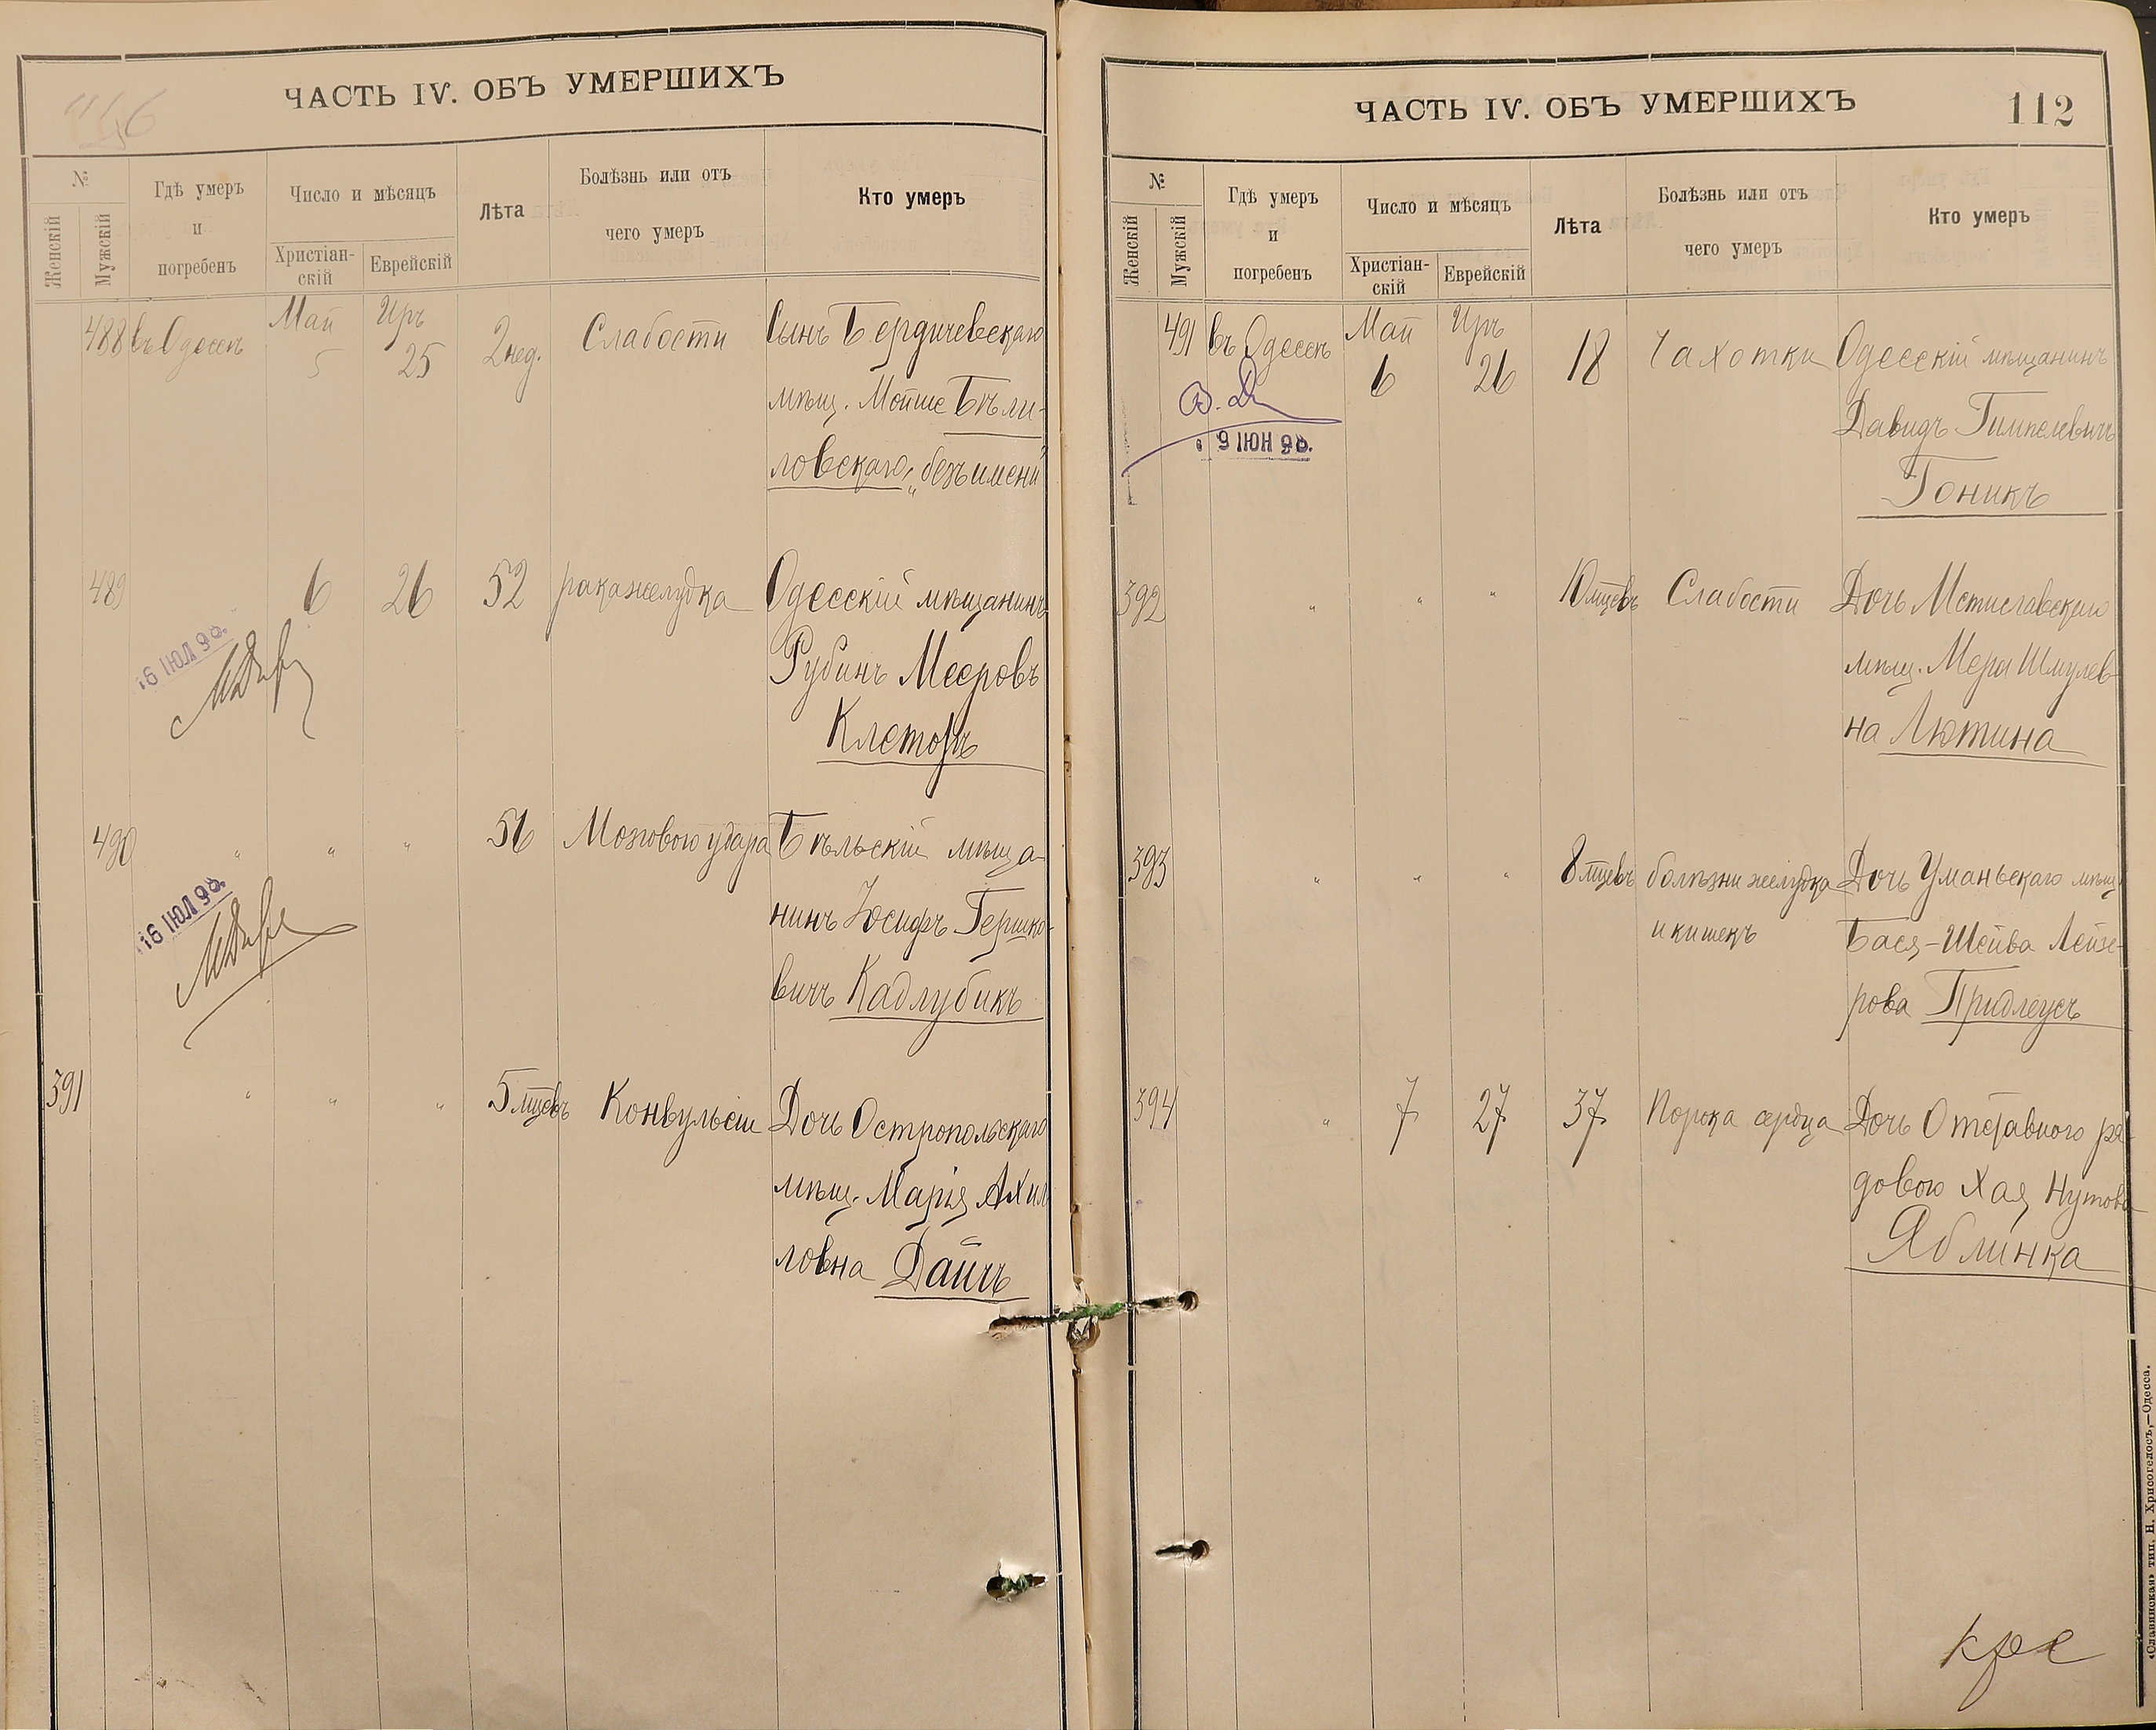 ЧАСТЬ IV. ОБЪ УМЕРШИХЪ
№
Женскій
Мужскій
Гдѣ умеръ
и
погребенъ
Число и мѣсяцъ
Христіан-
скій
Еврейскій
Лѣта
Болѣзнь или отъ
чего умеръ
Кто умеръ
488 въ Одессѣ Май Иръ 2 нед. Слабости Сынъ Бердичевскаго
5 25
мѣщ. Мойше Бѣли-
ловскаго, „безъ имени"
489 6 26 52 рака желудка Одесскій мѣщанинъ
16 ІЮЛ 98.
Рубинъ Мееровъ
Клеторъ
490 „ „ „ 56 Мозгового удара Бѣльскій мѣща-
16 ІЮЛ 98.
нинъ Іосифъ Гершко-
вичъ Кадлубикъ
391 „ „ „ 5 мцевъ Конвульсіи Дочь Остропольскаго
мѣщ. Марія Ахил
ловна Дайчъ
ЧАСТЬ IV. ОБЪ УМЕРШИХЪ
112
№
Женскій
Мужскій
Гдѣ умеръ
и
погребенъ
Число и мѣсяцъ
Христіан-
скій
Еврейскій
Лѣта
Болѣзнь или отъ
чего умеръ
Кто умеръ
491 въ Одессѣ Май Иръ 18 Чахотки Одесскій мѣщанинъ
6 26
9 ІЮН 98.
Давидъ Гимпелевичъ
Гоникъ
392 „ „ „ 10 мцевъ Слабости Дочь Мстиславскаго
мѣщ. Мера Шмулев-
на Лютина
393 „ „ „ 8 мцевъ болѣзни желудка Дочь Уманьскаго мѣщ.
и кишекъ Бася-Шейва Лейзе-
рова Придлеусъ
394 „ 7 27 37 Порока сердца Дочь Отставного ря-
дового Хая Нутова
Яблинка
«Славянская» тип. Н. Хрисогелосъ,—Одесса.